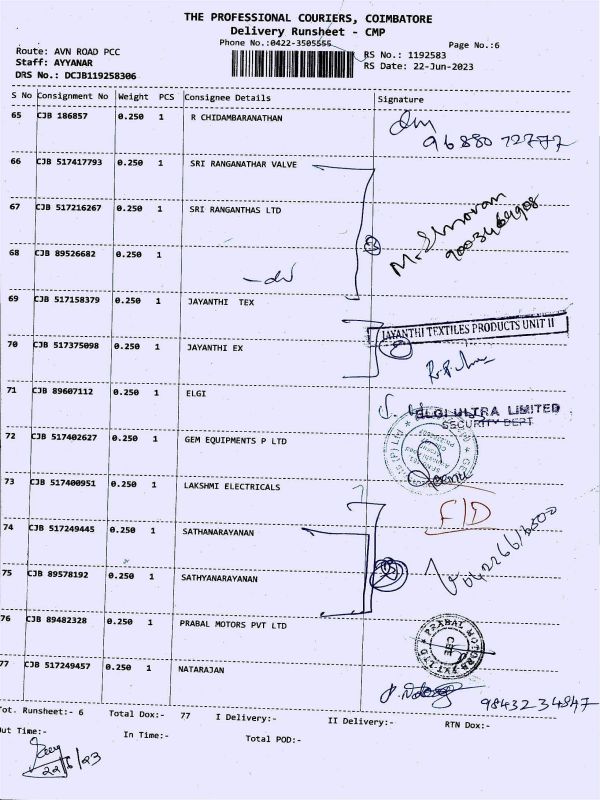 THE PROFESSIONAL COURIERS, COIMBATORE
Delivery Runsheet - CMP
Phone No.:0422-3505555
Page No.:6
Route: AVN ROAD PCC
RS No.: 1192583
Staff: AYYANAR
RS Date: 22-Jun-2023
DRS No.: DCJB119258306
S No Consignment No Weight PCS Consignee Details Signature
65 CJB 186857 0.250 1 R CHIDAMBARANATHAN
96880 72777
66 CJB 517417793 0.250 1 SRI RANGANATHAR VALVE
67 CJB 517216267 0.250 1 SRI RANGANTHAS LTD
68 CJB 89526682 0.250 1
69 CJB 517158379 0.250 1 JAYANTHI TEX
JAYANTHI TEXTILES PRODUCTS UNIT II
70 CJB 517375098 0.250 1 JAYANTHI EX
71 CJB 89607112 0.250 1 ELGI
ELGI ULTRA LIMITED
SECURITY DEPT
72 CJB 517402627 0.250 1 GEM EQUIPMENTS P LTD
73 CJB 517400951 0.250 1 LAKSHMI ELECTRICALS
F/D
74 CJB 517249445 0.250 1 SATHANARAYANAN
75 CJB 89578192 0.250 1 SATHYANARAYANAN
76 CJB 89482328 0.250 1 PRABAL MOTORS PVT LTD
PRABAL MOTORS PVT LTD
77 CJB 517249457 0.250 1 NATARAJAN
9843234847
Tot. Runsheet:- 6 Total Dox:- 77 I Delivery:- II Delivery:- RTN Dox:-
Out Time:- In Time:- Total POD:-
22/6/23